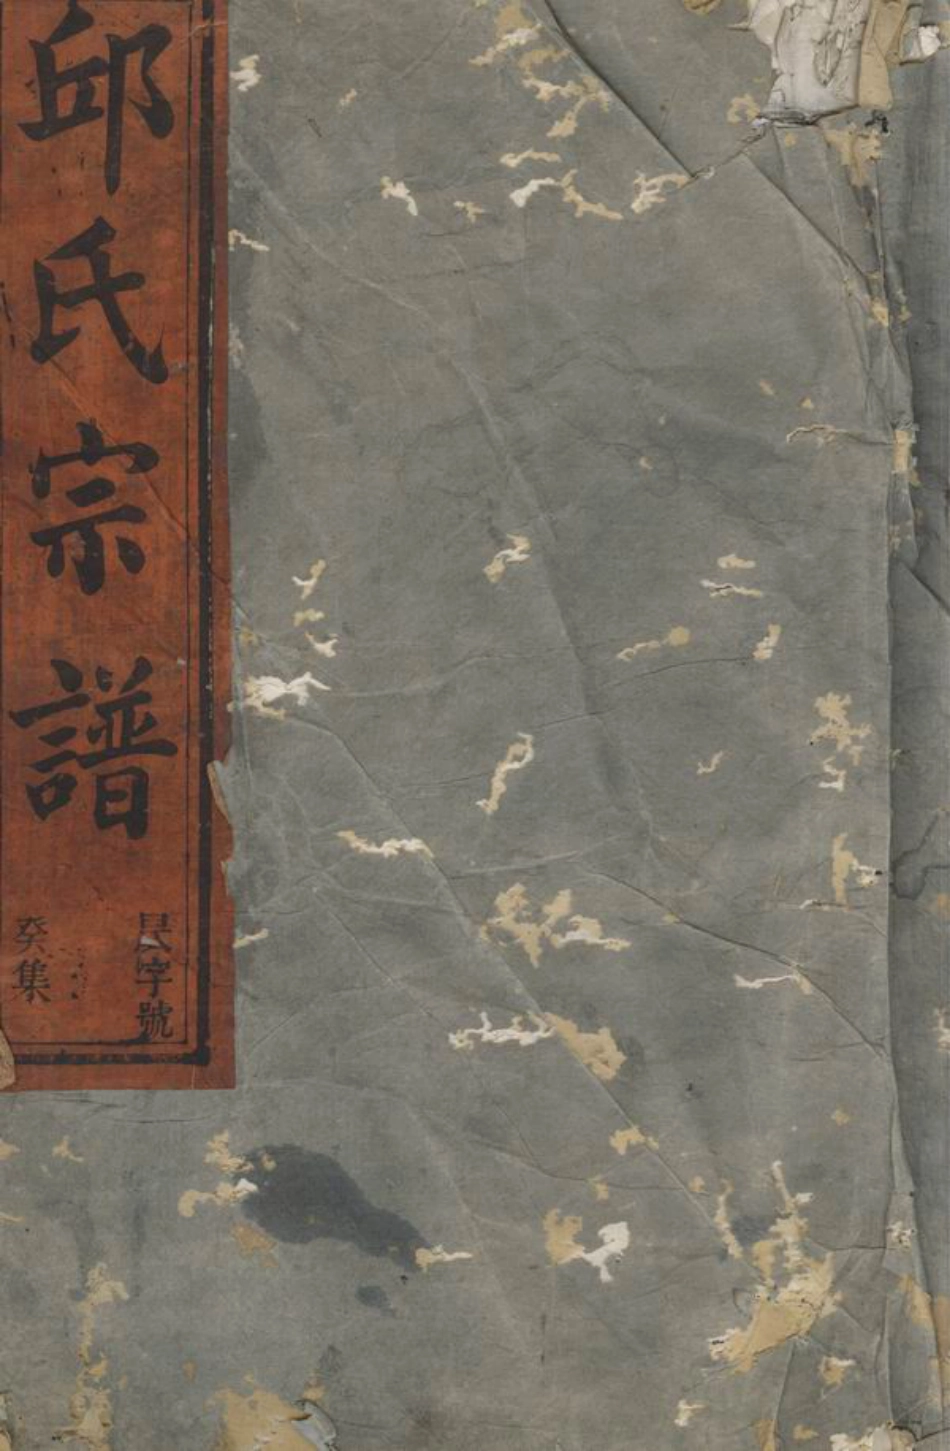 邱氏宗譜
字號
癸集